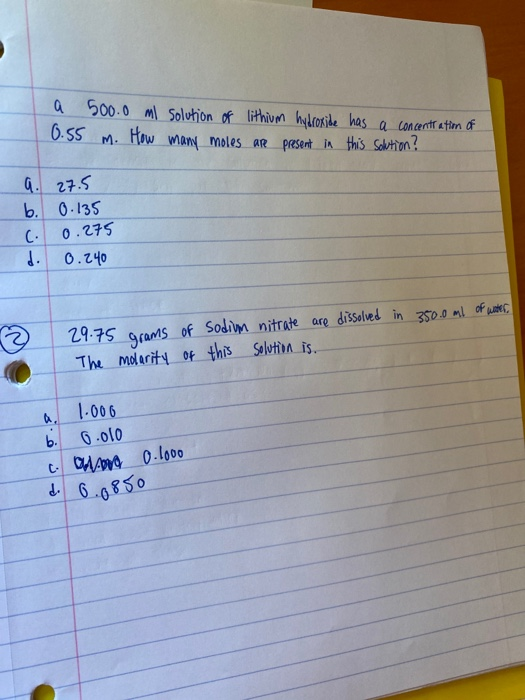 a 500.0 ml solution of lithium hydroxide has a concentration of
0.55 m. How many moles are present in this solution?
a. 27.5
b. 0.135
c. 0.275
d. 0.240
2 29.75 grams of sodium nitrate are dissolved in 350.0 ml of water.
The molarity of this solution is.
a. 1.000
b. 0.010
c. 0.1000
d. 0.0850